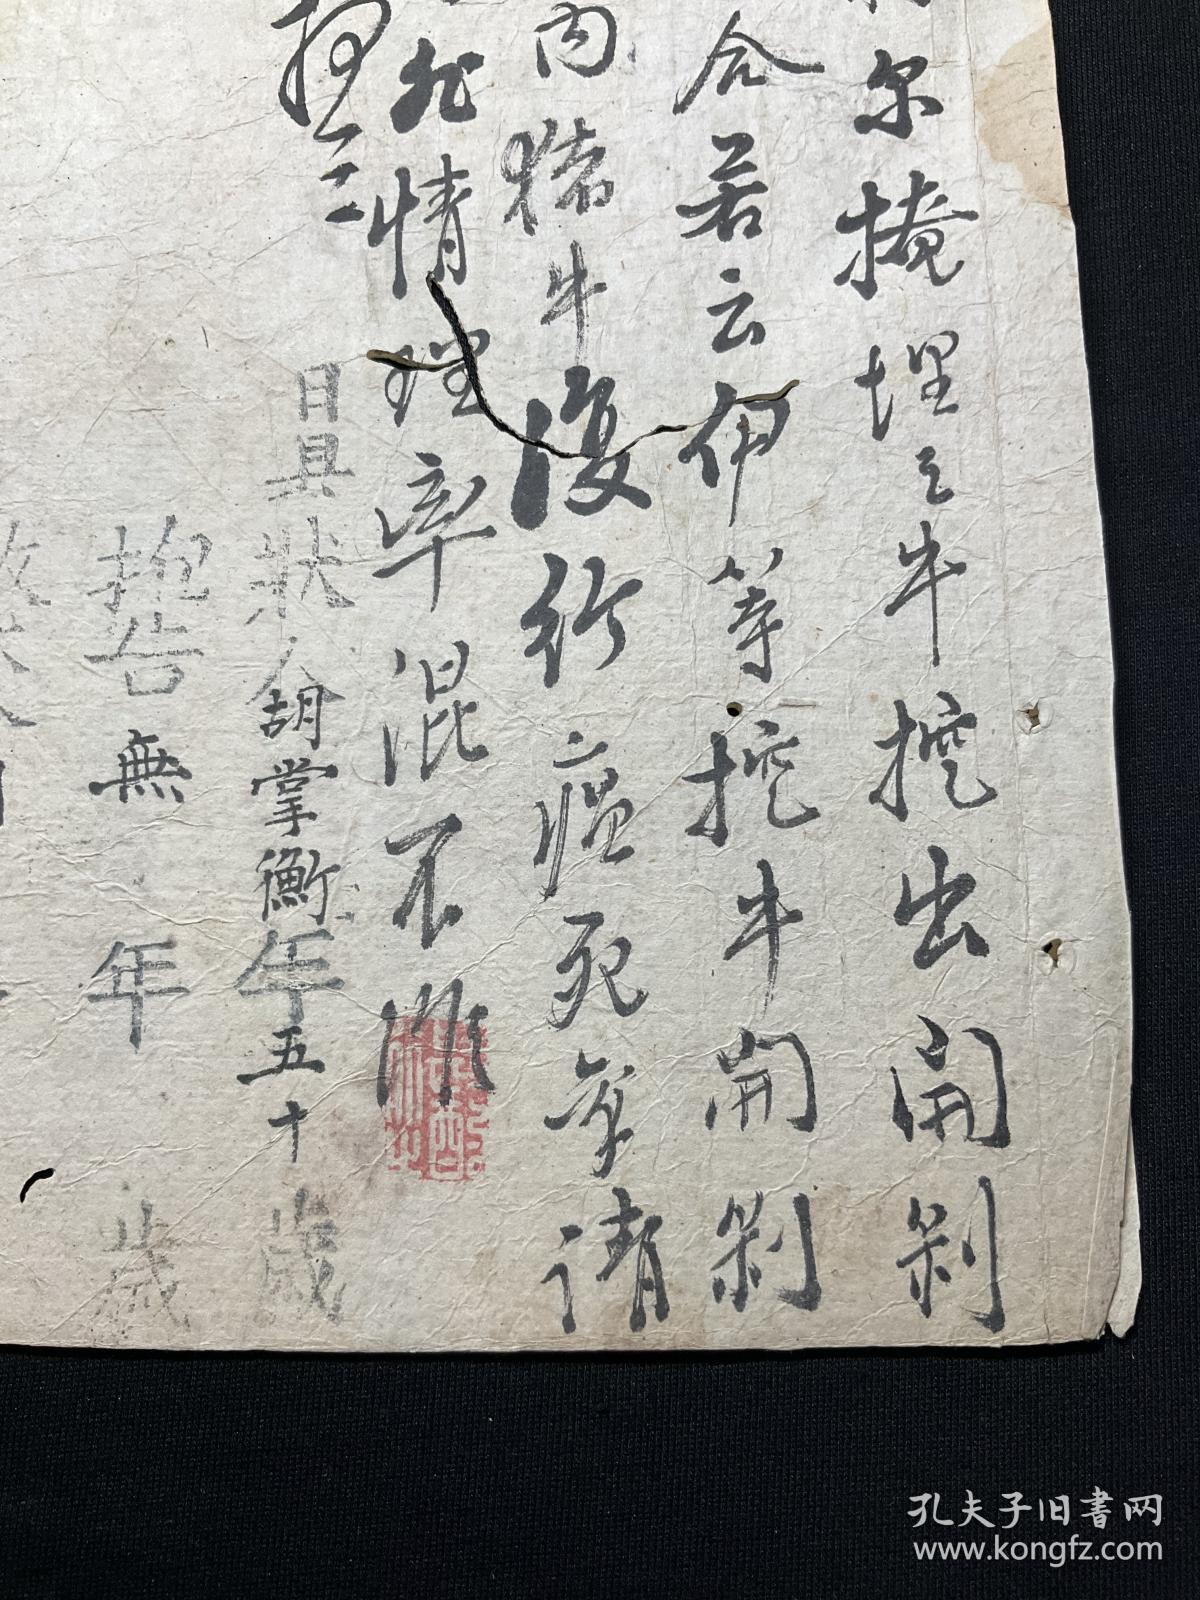 尔掩埋之牛挖出開剝
合若云伊等挖牛開剝
内猪牛復行瘟死等情
非情理率混不准
日具狀人胡掌衡年五十歲
抱告無年歲
孔夫子旧書网
www.kongfz.com